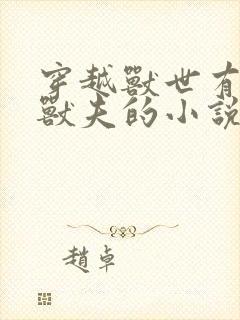 穿越獸世有
獸夫的小說
趙卓